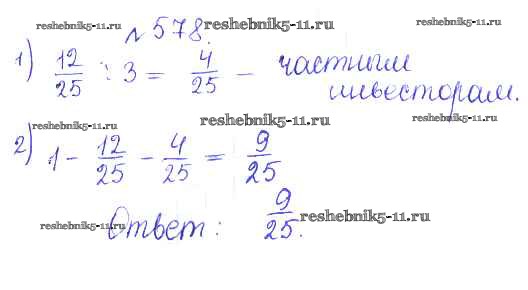 № 578.
reshebnik5-11.ru
reshebnik5-11.ru
1) 12/25 : 3 = 4/25 - частным
инвесторам.
reshebnik5-11.ru
reshebnik5-11.ru
reshebnik5-11.ru
2) 1 - 12/25 - 4/25 = 9/25
reshebnik5-11.ru
Ответ: 9/25.
reshebnik5-11.ru